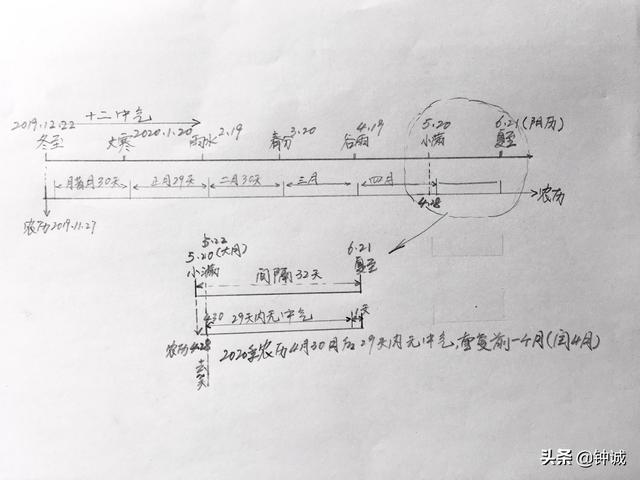 十二中气
2019.12.22 2020.1.20 2.19 3.20 4.19 5.20 6.21(阳历)
冬至 大寒 雨水 春分 谷雨 小满 夏至
腊月30天 正月29天 二月30天 三月 四月
4.28 农历
农历2019.11.27
5.22
5.20(大月) 6.21
小满 夏至
间隔32天
4.30 29天内无中气 1天
农历4.28
2020年农历4月30日后29天内无中气,重复前一个月(闰4月)
头条@钟诚